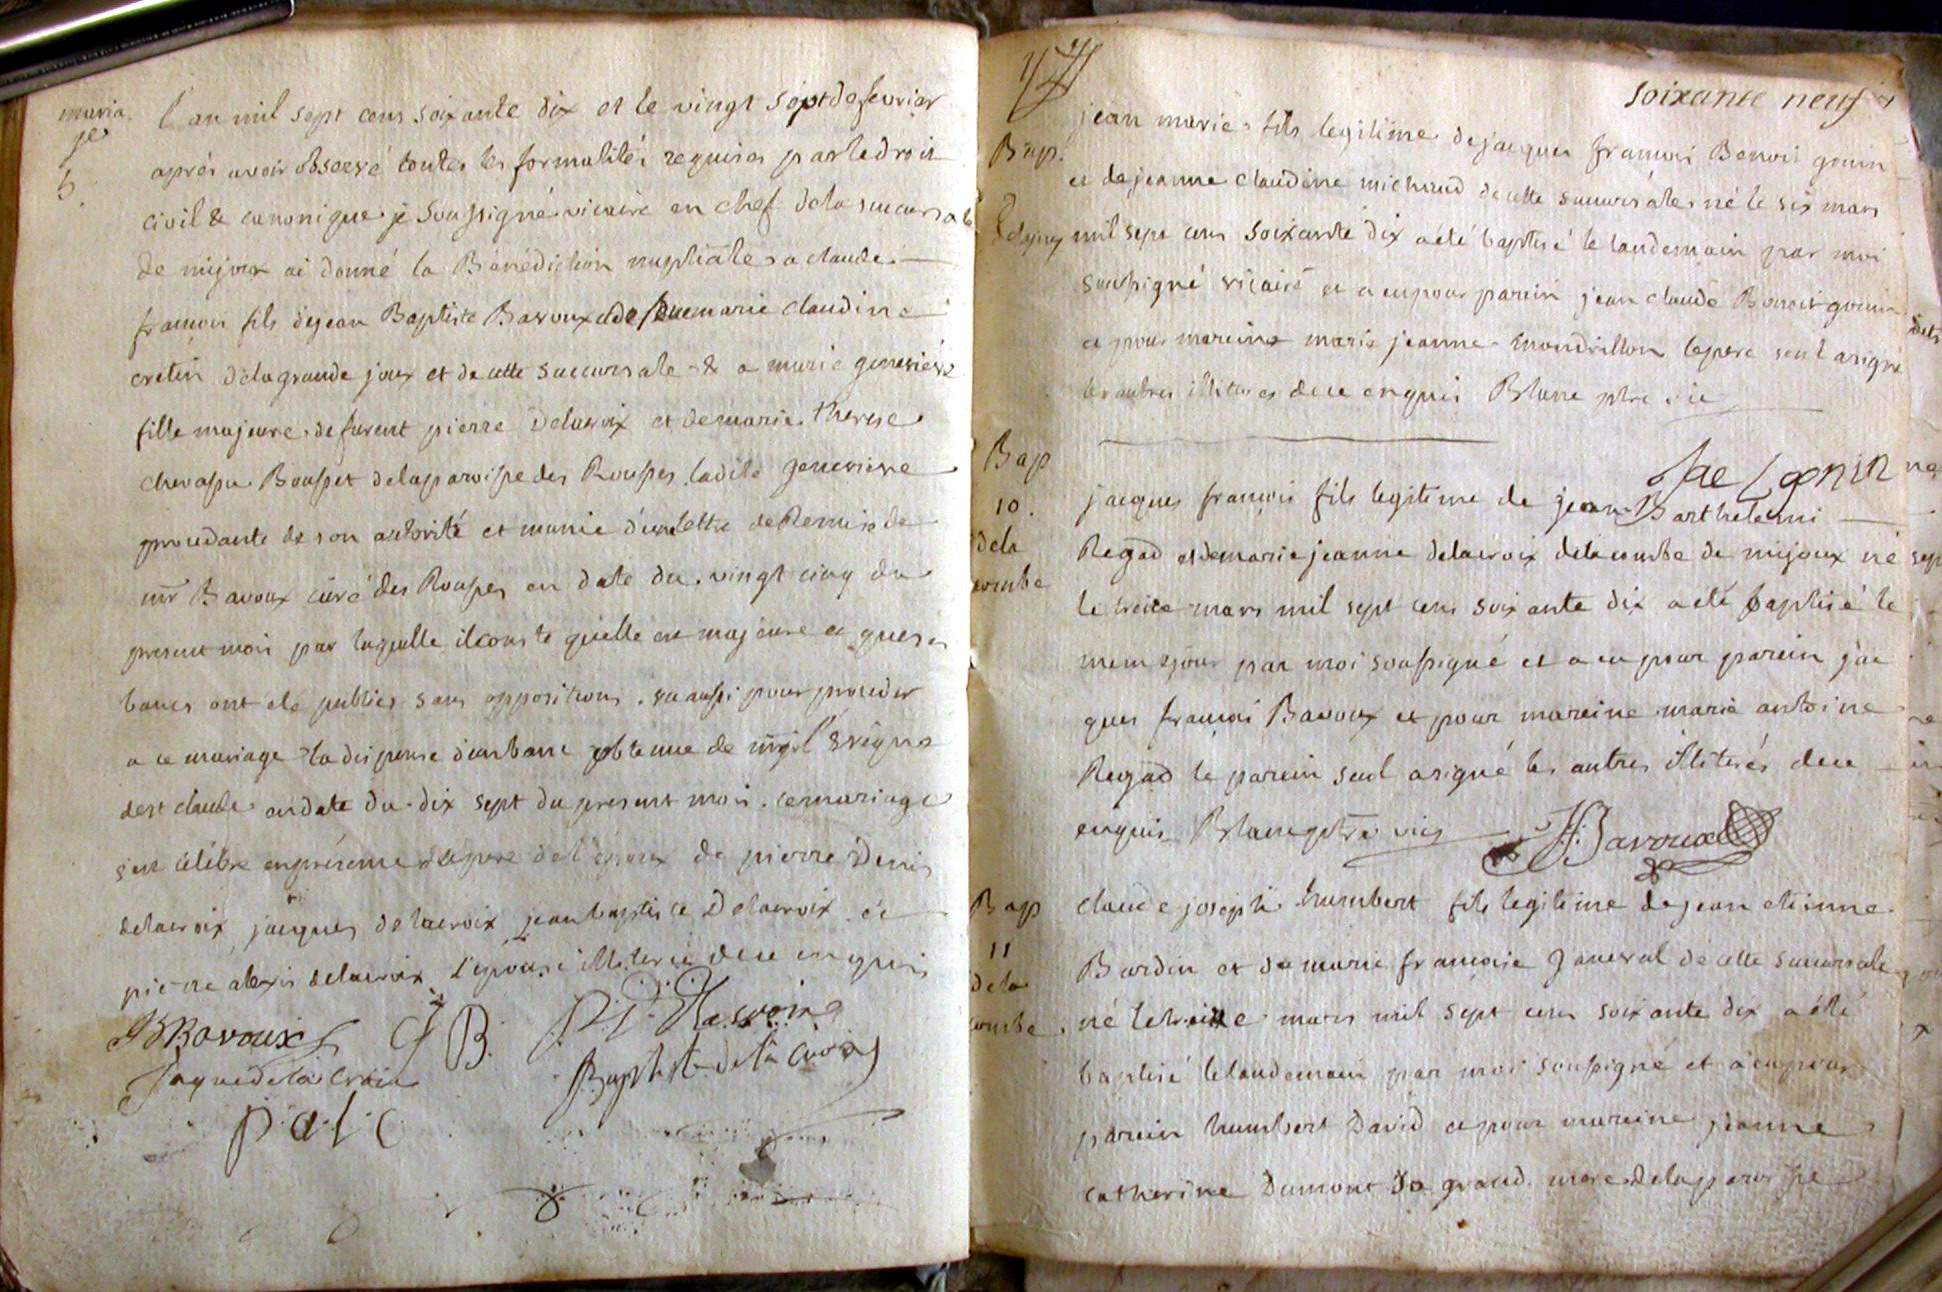 maria
ge
5
L'an mil sept cens soixante dix et le vingt sept de fevrier
aprés avoir observé toutes les formalités requises par le droit
civil & canonique je soussigné vicaire en chef de la succursale
de mijoux ai donné la Bénédiction nuptiale a claude
francois fils de jean Baptiste Bavoux et de feue marie claudine
cretin de la grande joux et de cette succursale & a marie genevieve
fille majeure de furent pierre delacroix et de marie therese
chevassu Bousset de la paroisse des Rousses ladite genevieve
procedante de son autorité et munie d'une lettre de Remise de
mr Bavoux curé des Rousses en date du vingt cinq du
present mois par laquelle il conste qu'elle est majeure et que ses
bancs ont eté publies sans oppositions . vu aussi pour proceder
a ce mariage la dispense d'un banc obtenue de mgr l'evêque
de st claude en date du dix sept du present mois . ce mariage
s'est célébré en présence du pere de l'epoux de pierre Denis
delacroix jacques delacroix jean baptiste Delacroix et
pierre alexis delacroix L'epouse illiterée de ce enquis
JB Bavoux C f B. P: D: Lacroix
Jaque de la Croix Baptiste de la Croix
p: a: l: c
soixante neuf
Bap.
jean marie fils legitime de jacques francois Benoit gonin
et de jeanne claudine michaud de cette succursale né le six mars
mil sept cens soixante dix a été baptisé le landemain par moi
soussigné vicaire et a eu pour parein jean claude Benoit gonin
et pour mareine marie jeanne mandrillon le pere seul a signé
les autres illiteres de ce enquis Blanc ptre vic
Jac gonin
Bap
10.
de la
combe
jacques francois fils legitime de jean Barthelemi
Regad et de marie jeanne delacroix de la combe de mijoux né
le treize mars mil sept cens soixante dix a eté baptisé le
meme jour par moi soussigné et a eu pour parein jac
ques francois Bavoux et pour mareine marie antoine
Regad le parein seul a signé les autres illiterés de ce
enquis Blanc ptre vic JF: Bavoux
Bap
11
de la
combe
claude joseph humbert fils legitime de jean etienne
Burdin et de marie francoise gaueval de cette succursale
né le treize mars mil sept cens soixante dix a été
baptisé le landemain par moi soussigné et a eu pour
parein humbert David et pour mareine jeanne
catherine Dumont sa grand mere de la paroisse